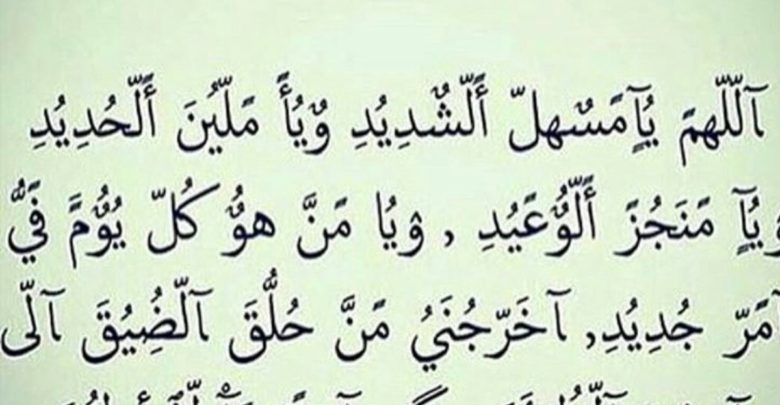 آللّهمَ يُآمَسٌهلّ أَلّشُدِيُدِ وٌيُأَ مَلّيُنَ أَلّحُدِيُدِ
وٌيُآ مَنَجُزَ أَلّوٌعَيُدِ , وٌيُا مَنَّ هوٌ كُلّ يُوٌمَ فَيُّ
آمَرّ جُدِيُدِ, آخَرّجُنَيُ مَنَّ حُلُّقَ آلّضُيُقَ آلّى